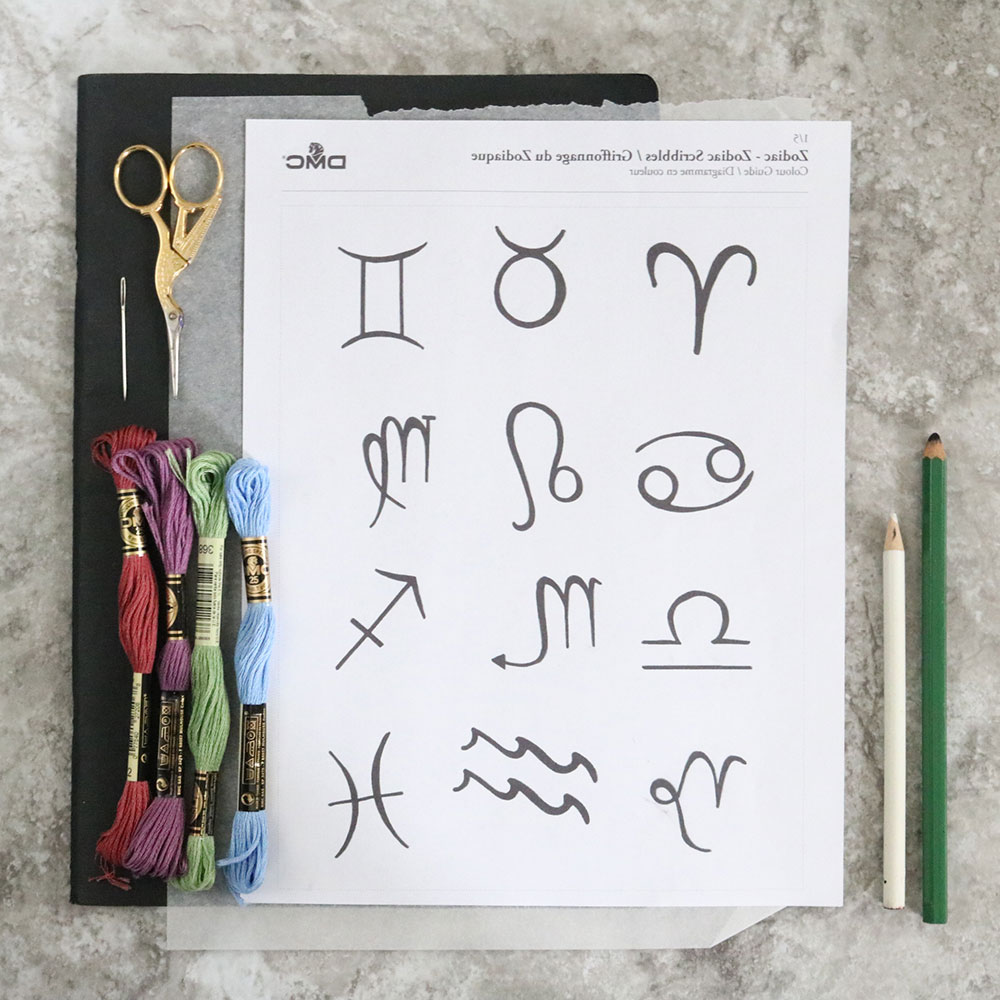 1/5
Zodiac - Zodiac Scribbles / Griffonnage du Zodiaque
Colour Guide / Diagramme en couleur
DMC
368
25